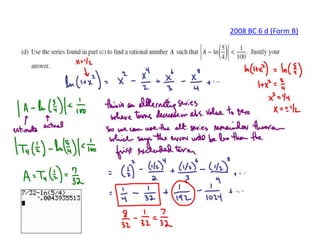 2008 BC 6 d (Form B)
(d) Use the series found in part (c) to find a rational number A such that |A − ln(5/4)| < 1/100. Justify your
answer.
x=1/2
ln(1+x²) = x² − x⁴/2 + x⁶/3 − x⁸/4 + ⋯
ln(1+x²) = ln(5/4)
1+x² = 5/4
x² = 1/4
x = ± 1/2
|A − ln(5/4)| < 1/100
estimate actual
|T₄(1/2) − ln(5/4)| < 1/100
A = T₄(1/2) = 7/32
this is an alternating series
where terms decrease in abs value to zero
So we can use the alt series remainder theorem
which says the error will be less than the
first neglected term.
= (1/2)² − (1/2)⁴/2 + (1/2)⁶/3 − (1/2)⁸/4 + ⋯
= 1/4 − 1/32 + 1/192 − 1/1024 + ⋯
8/32 − 1/32 = 7/32
7/32-ln(5/4)
-.0043935513